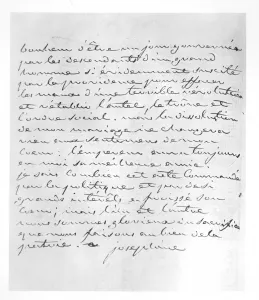 bonheur d'être un jour gouvernée
par les descendants d'un grand
homme si évidemment suscité
par la providence pour effacer
les maux d'une terrible révolution
et rétablir l'autel, le trône et
l'ordre social. mais la dissolution
de mon mariage ne changera
rien aux sentimens de mon
coeur: l'empereur aura toujours
en moi sa meilleure amie.
je sais combien cet acte commandé
par la politique et par de si
grands intérêts a froissé son
coeur; mais l'un et l'autre
nous sommes glorieux du sacrifice
que nous faisons au bien de la
patrie.
joséphine